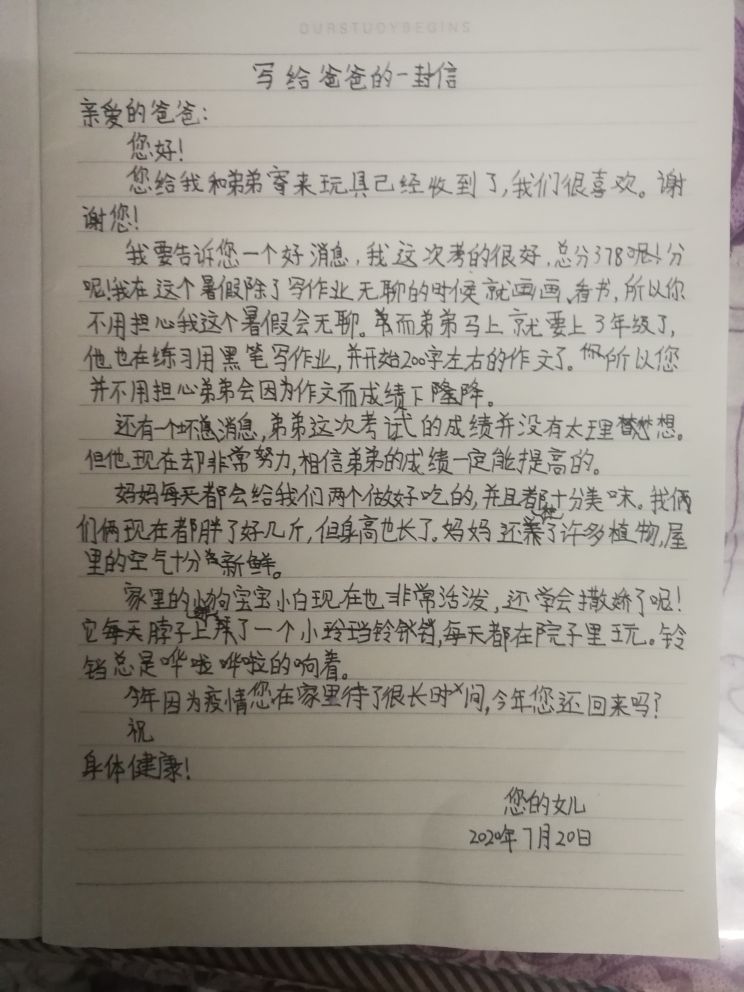 OURSTUDYBEGINS
写给爸爸的一封信
亲爱的爸爸:
您好!
您给我和弟弟寄来玩具已经收到了,我们很喜欢。谢
谢您!
我要告诉您一个好消息,我这次考的很好,总分378分
呢!我在这个暑假除了写作业无聊的时候就画画、看书,所以你
不用担心我这个暑假会无聊。而弟弟马上就要上3年级了,
他也在练习用黑笔写作业,并开始200字左右的作文了。所以您
并不用担心弟弟会因为作文而成绩下降。
还有一个坏消息,弟弟这次考试的成绩并没有太理想。
但他现在却非常努力,相信弟弟的成绩一定能提高的。
妈妈每天都会给我们两个做好吃的,并且都十分美味。我俩
们俩现在都胖了好几斤,但身高也长了。妈妈还养了许多植物,屋
里的空气十分新鲜。
家里的小狗宝宝小白现在也非常活泼,还学会撒娇了呢!
它每天脖子上绑了一个小玲珰铃铛,每天都在院子里玩。铃
铛总是哗啦哗啦的响着。
今年因为疫情您在家里待了很长时间,今年您还回来吗?
祝
身体健康!
您的女儿
2020年7月20日